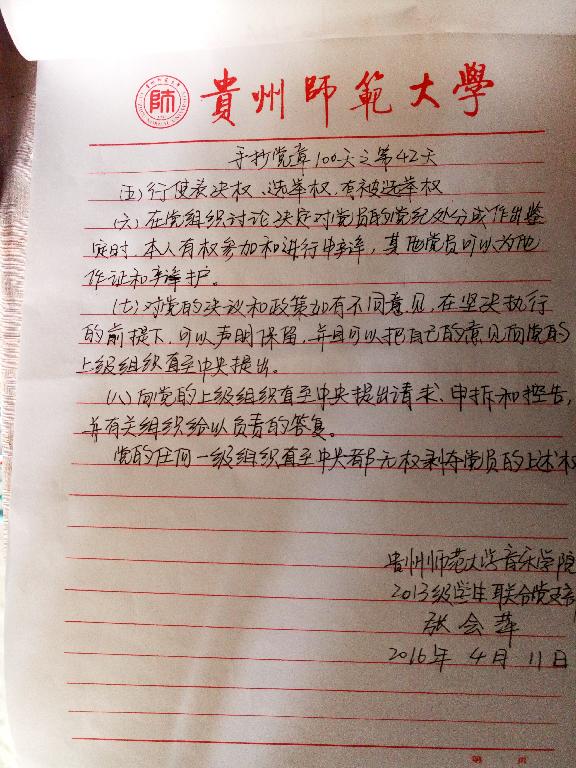 貴州師範大學
手抄党章100天之第42天
(五)行使表决权、选举权,有被选举权
(六)在党组织讨论决定对党员的党纪处分或作出鉴
定时,本人有权参加和进行申辩,其他党员可以为他
作证和辩护。
(七)对党的决议和政策如有不同意见,在坚决执行
的前提下,可以声明保留,并且可以把自己的意见向党的
上级组织直至中央提出。
(八)向党的上级组织直至中央提出请求、申诉和控告,
并有关组织给以负责的答复。
党的任何一级组织直至中央都无权剥夺党员的上述权
贵州师范大学音乐学院
2013级学生联合党支部
张会萍
2016年4月11日
第 页